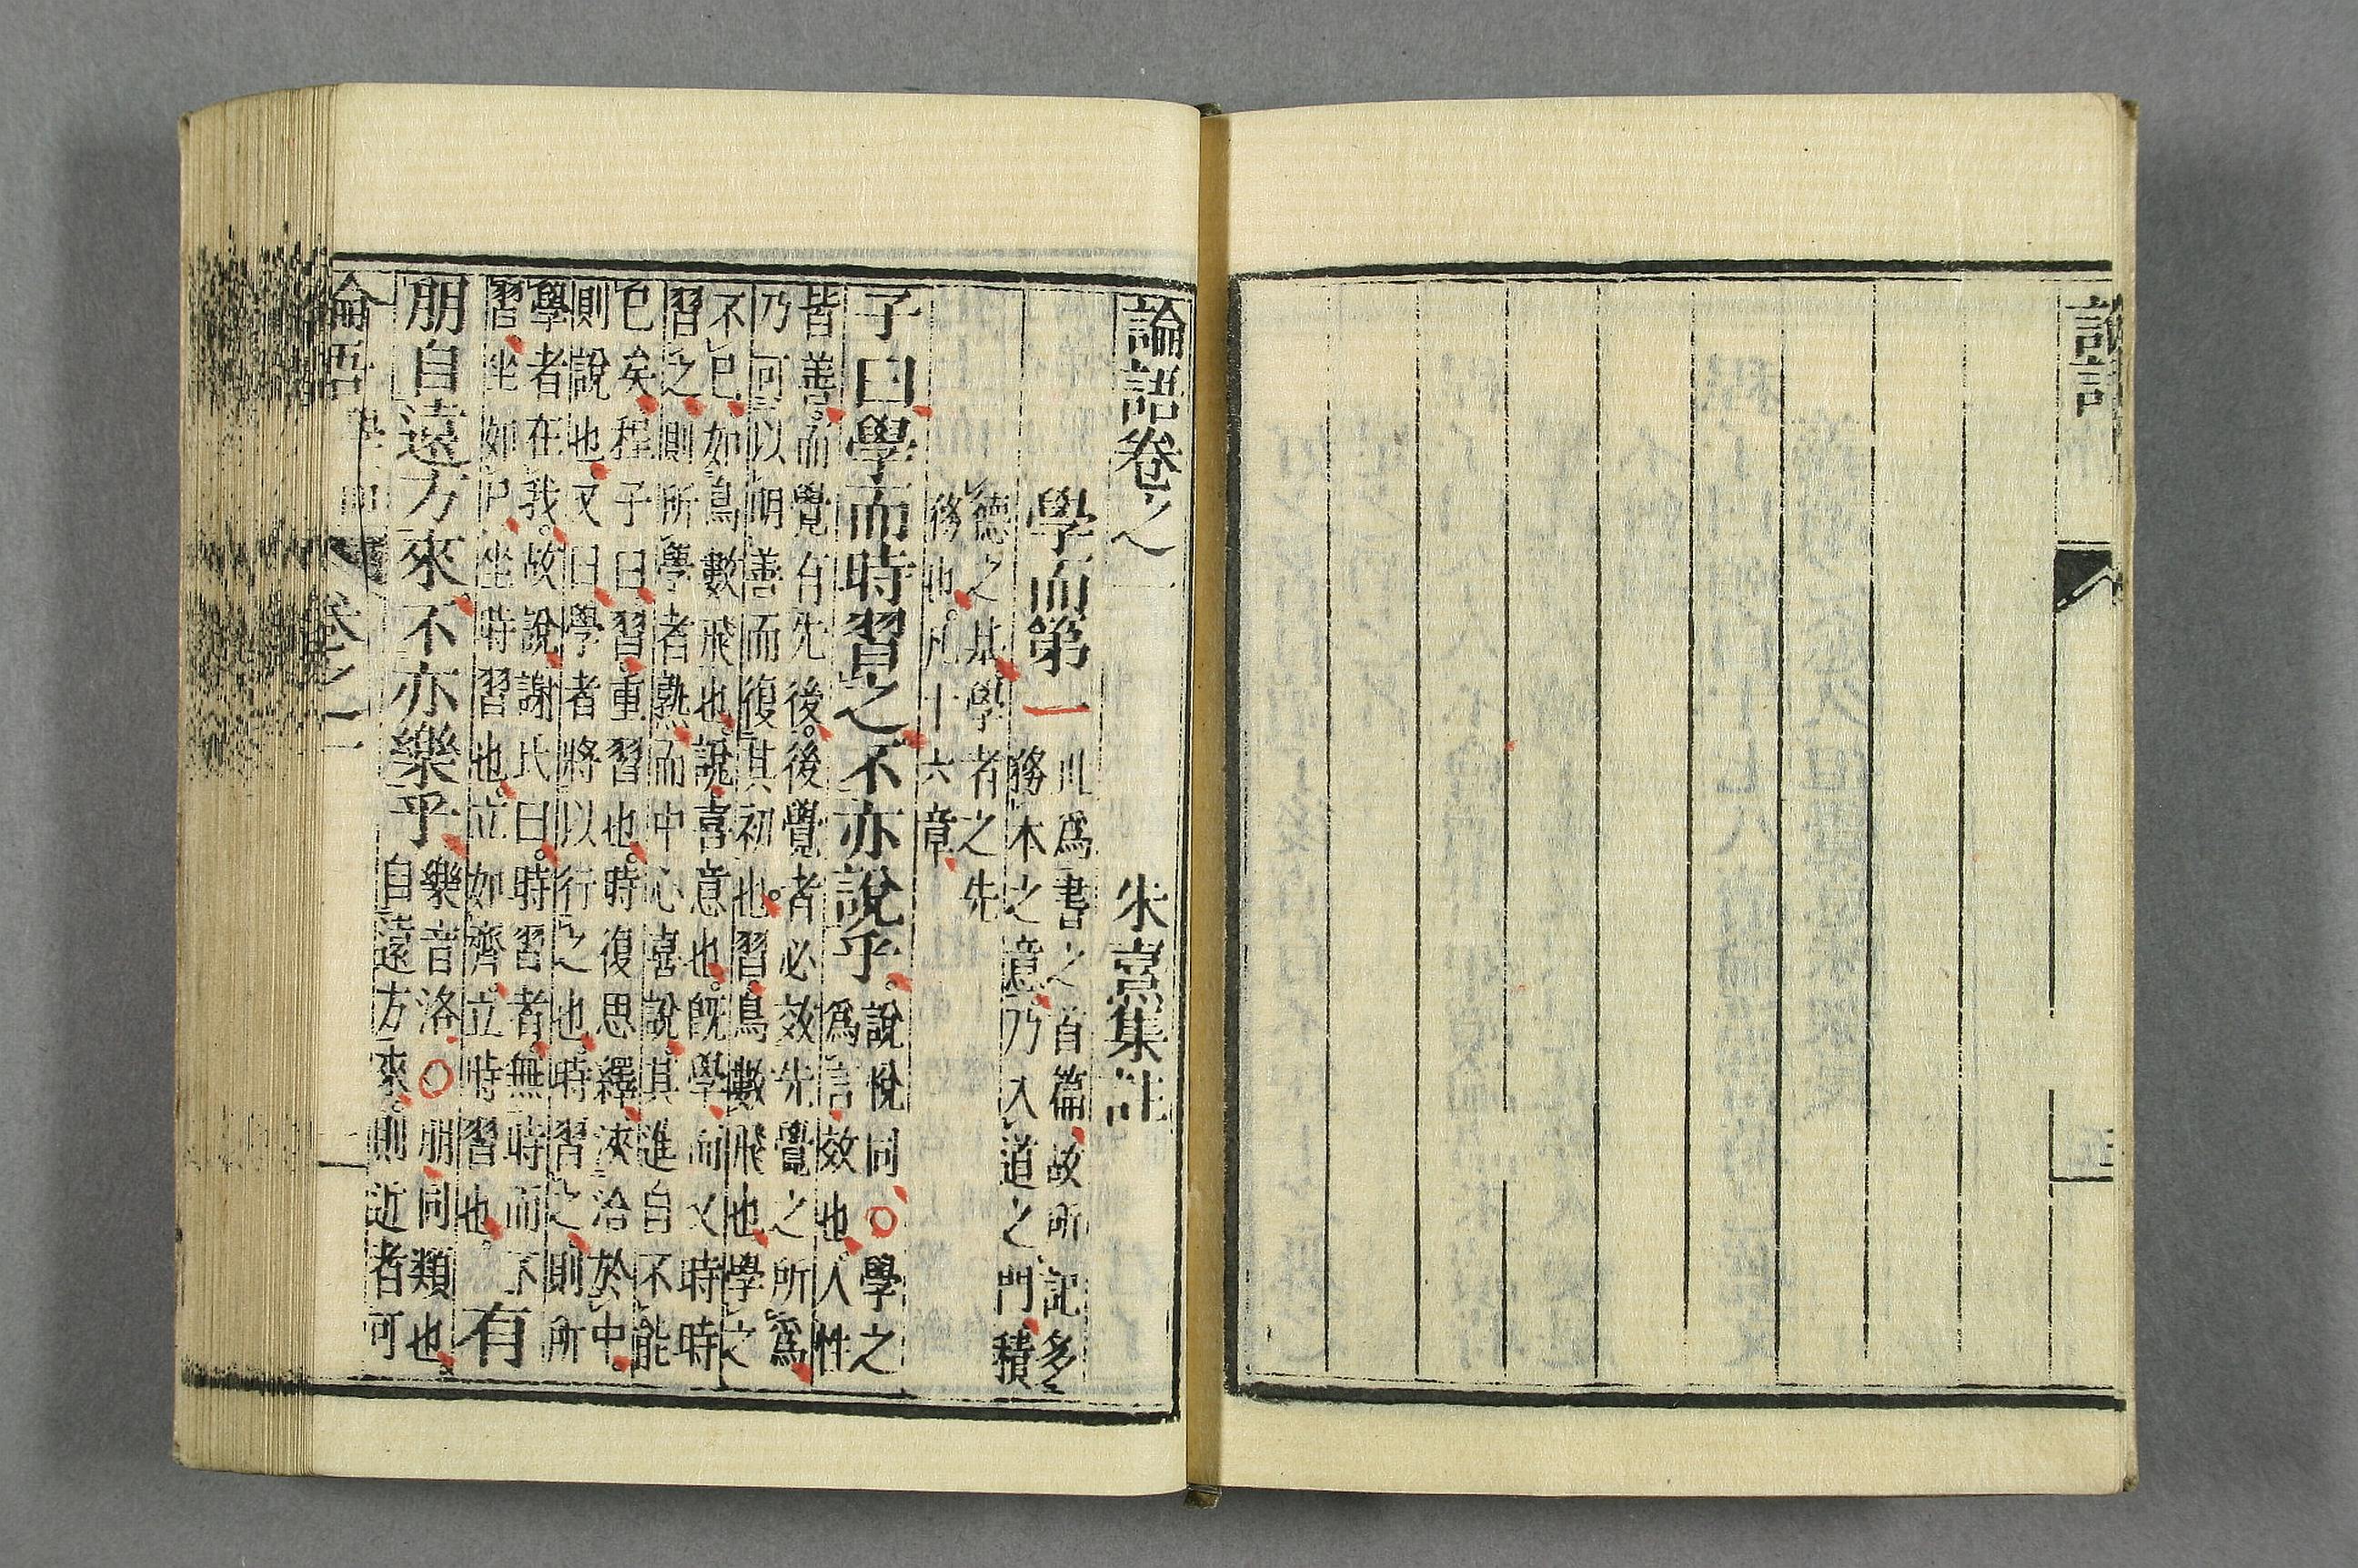 論語卷之一 朱熹集註
學而第一
此爲書之首篇故所記多
務本之意乃入道之門積
德之基學者之先
務也凡十六章
子曰學而時習之不亦說乎
說悅同○學之
爲言效也人性
皆善而覺有先後後覺者必效先覺之所爲
乃可以明善而復其初也習鳥數飛也學之
不已如鳥數飛也說喜意也旣學而又時時
習之則所學者熟而中心喜說其進自不能
已矣程子曰習重習也時復思繹浹洽於中
則說也又曰學者將以行之也時習之則所
學者在我故說謝氏曰時習者無時而不
習坐如尸坐時習也立如齊立時習也
有
朋自遠方來不亦樂乎
樂音洛○朋同類也
自遠方來則近者可
論語 學而 卷之一 一